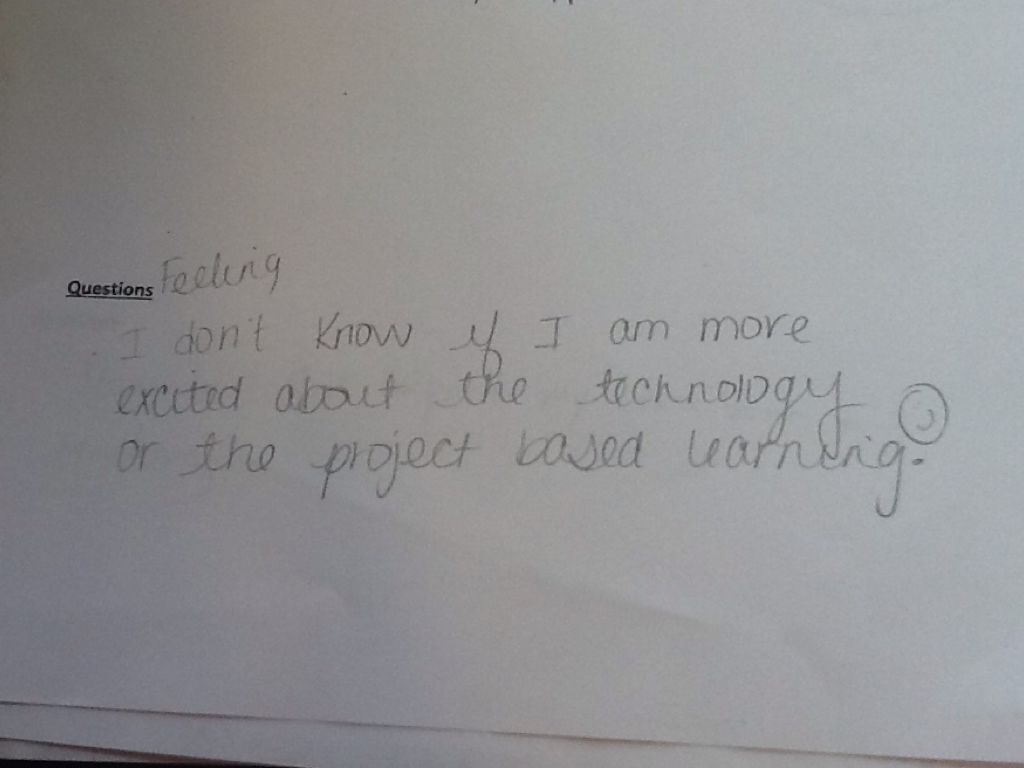 Questions Feeling
I don't know if I am more
excited about the technology
or the project based learning.